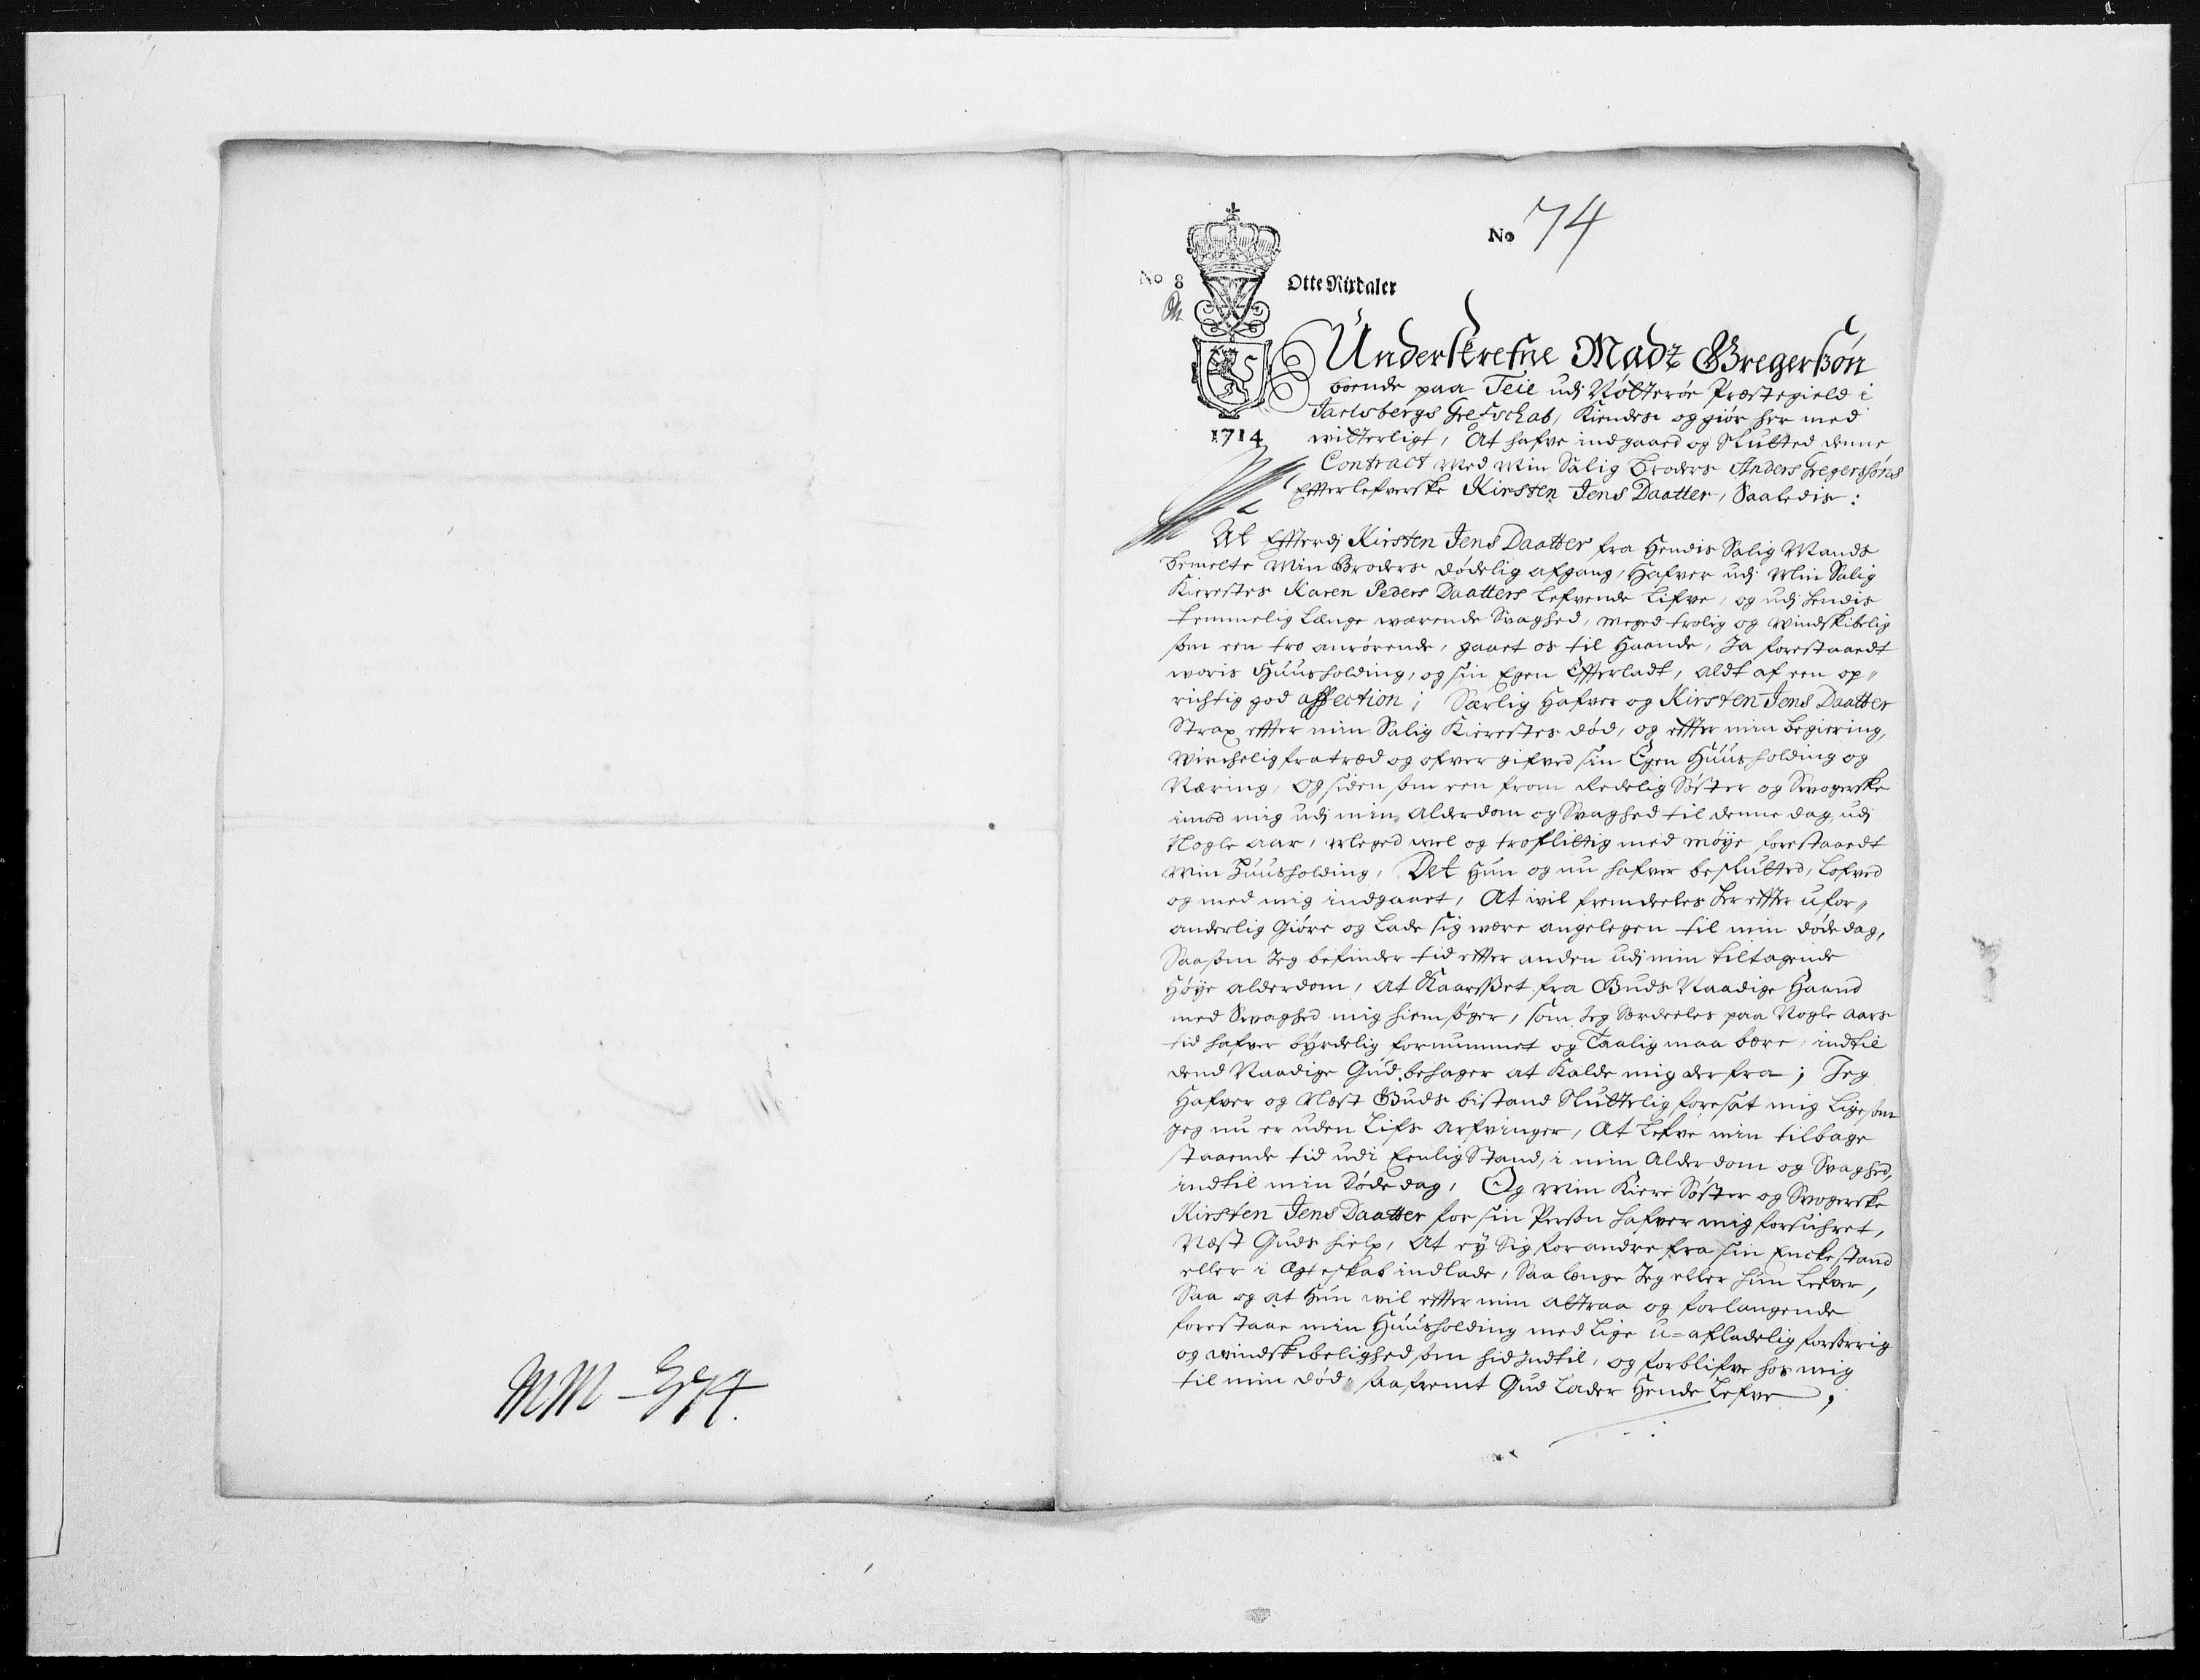 No 74
No 8 Otte Rixdaler
1714
Underskrefne Madz Gregersøn
boende paa Teie udj Nøtterøe Præstegield i
Jarlsbergs Grefschab, Kiendes og giør her med
witterligt, At hafve indgaaed og Slutted denne
Contract med Min Salig Broders Anders Gregersøns
Efterlefverske Kirsten Jens Daatter, Saaledis:
At Efterdj Kirsten Jens Daatter fra Hendis Salig Mands
bemelte Min Broders dødelig afgang, Hafver udj Min Salig
Kierestes Karen Peders Daatters Lefvende Lifve, og udj hendis
temmelig Længe warende Svaghed, meged trolig og windskibelig
som een tro anrørende, gaaet os til Haande, Ja forestaaedt
woris Huusholding, og sin Egen Efterladt, aldt af een op„
richtig god affection; Særlig Hafver og Kirsten Jens Daatter
Strax efter min Salig Kierestes død, og efter min begiering,
Wirchelig fratræd og ofvergifved sin Egen Huusholding og
Næring, Og siden som een from Redelig Søster og Svogerske
imod mig udj min Alderdom og Svaghed til denne dag, udj
Nogle aar, Meged wel og troflittig med møye forestaaedt
Min Huusholding, Det Hun og nu hafver beslutted, Lofved
og med mig indgaaet, At wil fremdeeles her efter ufor„
anderlig Giøre og Lade sig være angelegen til min døde dag,
Saasom Jeg befinder tid efter anden udj min tiltagende
Høye alderdom, at Kaarsset fra Guds Naadige Haand
med Svaghed mig hiemsøger, som Jeg Særdeeles paa Nogle aars
tid hafver byrdelig fornummet og Taalig maa bære, indtil
dend Naadige Gud behager at Kalde mig derfra; Jeg
Hafver og Næst Guds bistand Sluttelig foresat mig Ligesom
Jeg nu er uden Lifs Arfvinger, At Lefve min tilbage
staaende tid udi Eenlig Stand, i min Alderdom og Svaghed,
indtil min Døde dag, Og Min Kiere Søster og Svogerske
Kirsten Jens Daatter for sin Person hafver mig forsichret,
Næst Guds hielp, At ey Sig forandre fra sin Enckestand
eller i Ægteskab indlade, Saa længe Jeg eller hun Lefver,
Saa og at Hun wil efter min attraa og forlangende
forestaae min Huusholding med Lige u=afladelig forsorrig
og windskibelighed som hid Indtil, og forblifve hos mig
til min død, saafremt Gud Lader Hende Lefve,